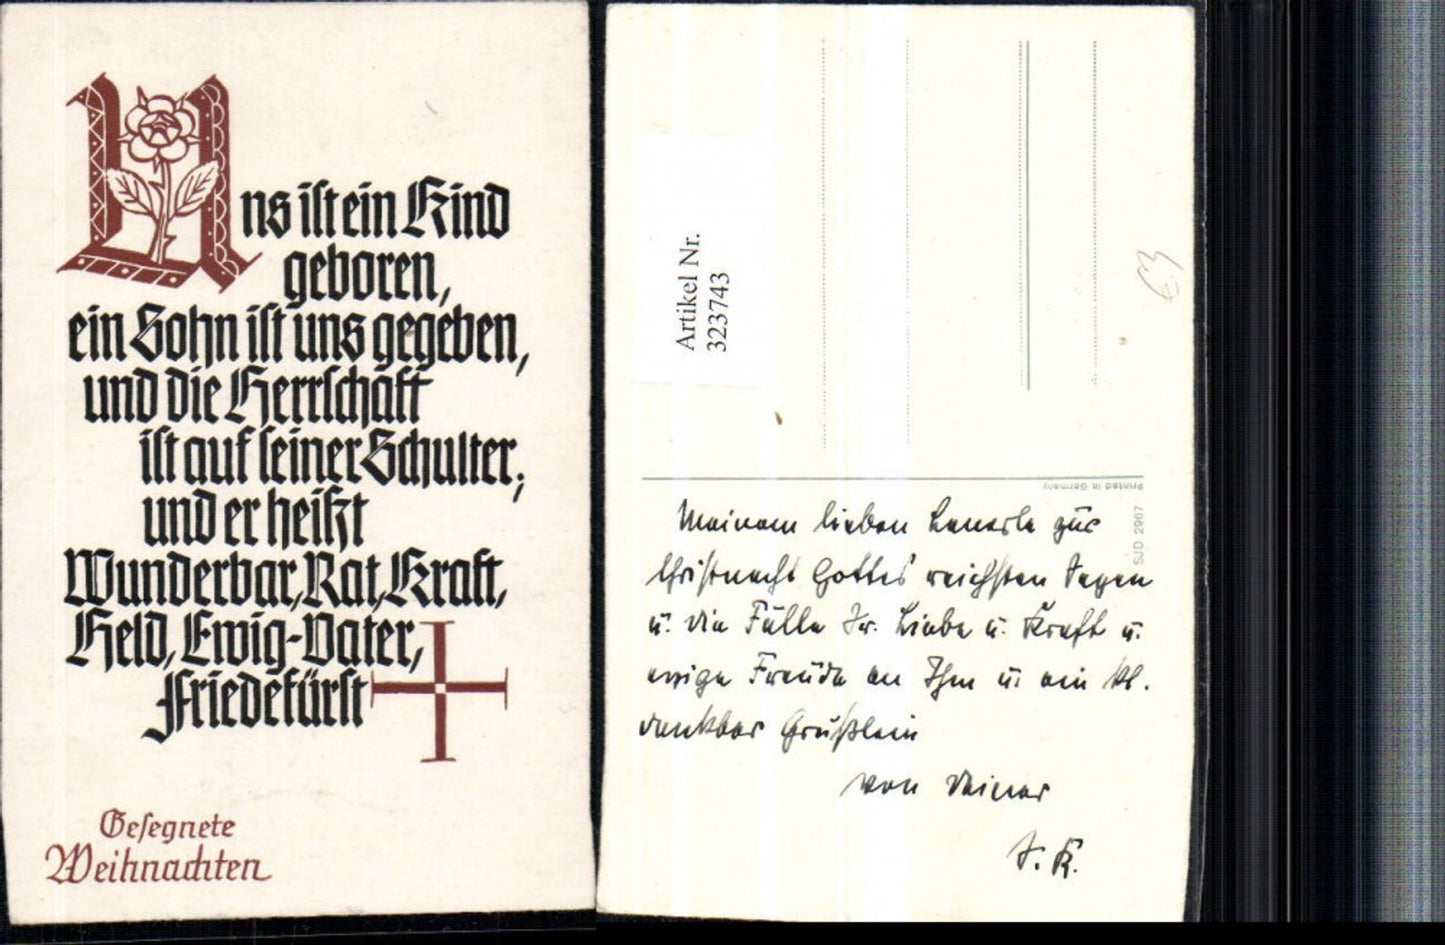 Uns ist ein Kind
geboren,
ein Sohn ist uns gegeben,
und die Herrschaft
ist auf seiner Schulter;
und er heißt
Wunderbar, Rat, Kraft,
Held, Ewig-Vater,
Friedefürst
Gesegnete
Weihnachten
Artikel Nr.
323743
€3
Printed in Germany
SJD 2967
Meinem lieben zur
Christnacht Gottes reichsten Segen
u. die Fülle Sr. Liebe u. Kraft u.
ewige Freude an Ihm u. ein kl.
dankbar Grüßlein
von Deiner
J. K.